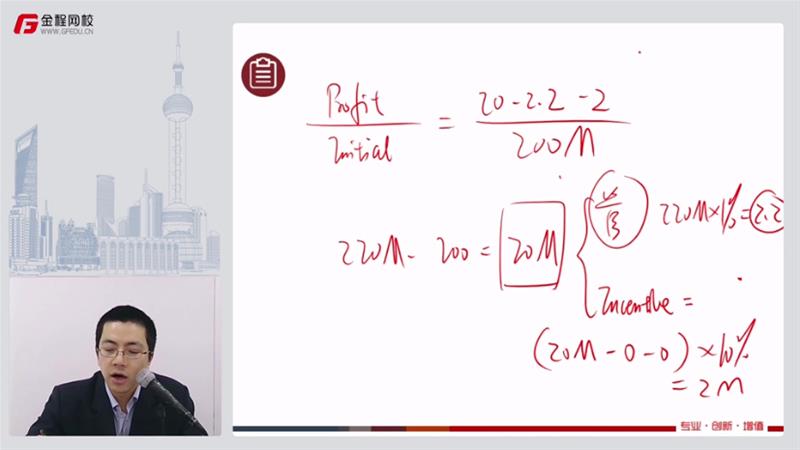 金程网校
WWW.GFEDU.CN
Profit
Initial
=
20 - 2.2 - 2
200M
220M - 200 = 20M
220M × 1% = 2.2
Incentive =
(20M - 0 - 0) × 10%
= 2M
专业·创新·增值